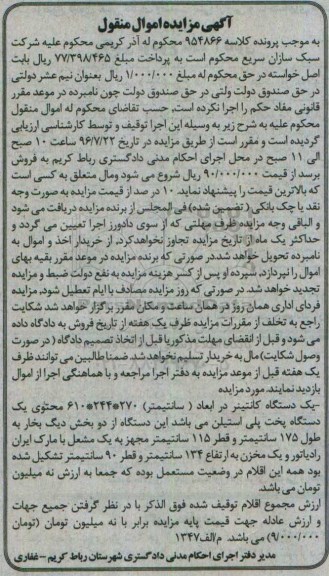 آگهی مزایده اموال منقول
به موجب پرونده کلاسه ۹۵۴۸۶۶ محکوم له آذر کریمی محکوم علیه شرکت
سبک سازان سریع محکوم است به پرداخت مبلغ ۷۷/۳۹۸/۴۶۵ ریال بابت
اصل خواسته در حق محکوم له مبلغ ۱/۰۰۰/۰۰۰ ریال بعنوان نیم عشر دولتی
در حق صندوق دولت ولتی در حق صندوق دولت چون نامبرده در موعد مقرر
قانونی مفاد حکم را اجرا نکرده است، حسب تقاضای محکوم له اموال منقول
محکوم علیه به شرح زیر به وسیله این اجرا توقیف و توسط کارشناسی ارزیابی
گردیده است و مقرر است از طریق مزایده در تاریخ ۹۶/۷/۲۲ ساعت ۱۰ صبح
الی ۱۱ صبح در محل اجرای احکام مدنی دادگستری رباط کریم به فروش
برسد از قیمت ۹۰/۰۰۰/۰۰۰ ریال شروع می شود ومال متعلق به کسی است
که بالاترین قیمت را پیشنهاد نماید. ۱۰ در صد از قیمت مزایده به صورت وجه
نقد یا چک بانکی ( تضمین شده) فی المجلس از برنده مزایده دریافت می شود
و الباقی وجه مزایده طی مهلتی که از سوی دادورز اجرا تعیین می گردد و
حداکثر یک ماه از تاریخ مزایده تجاوز نخواهد کرد، از خریدار اخذ و اموال به
نامبرده تحویل خواهد شد.در صورتی که برنده مزایده در موعد مقرر بقیه بهای
اموال را نپردازد، سپرده او پس از کسر هزینه مزایده به نفع دولت ضبط و مزایده
تجدید خواهد شد. در صورتی که روز مزایده مصادف با ایام تعطیل شود, مزایده
فردای اداری همان روز در همان ساعت و مکان مقرر برگزار خواهد شد شکایت
راجع به تخلف از مقررات مزایده ظرف یک هفته از تاریخ فروش به دادگاه داده
می شود و قبل از انقضای مهلت مذکور یا قبل از اتخاذ تصمیم دادگاه ( در صورت
وصول شکایت) مال به خریدار تسلیم نخواهد شد. ضمنا طالبین می توانند ظرف
یک هفته قبل از موعد مزایده به دفتر اجرا مراجعه و با هماهنگی اجرا از اموال
بازدید نمایند. مورد مزایده
-یک دستگاه کانتینر در ابعاد ( سانتیمتر) ۲۷۰*۲۴۴*۶۱۰ محتوی یک
دستگاه پخت پلی استیلن می باشد این دستگاه از دو بخش دیگ بخار به
طول ۱۷۵ سانتیمتر و قطر ۱۱۵ سانتیمتر مجهز به یک مشعل با مارک ایران
رادیاتور و یک مخزن به ارتفاع ۱۳۴ سانتیمتر و قطر ۹۰ سانتیمتر تشکیل شده
بود همه این اقلام در وضعیت مستعمل بوده که جمعا به ارزش نه میلیون
تومان می باشد.
ارزش مجموع اقلام توقیف شده فوق الذکر با در نظر گرفتن جمیع جهات
و ارزش عادله جهت قیمت پایه مزایده برابر با نه میلیون تومان (تومان
۹/۰۰۰/۰۰۰) می باشد. م/الف۱۳۴۷
مدیر دفتر اجرای احکام مدنی دادگستری شهرستان رباط کریم -غفاری